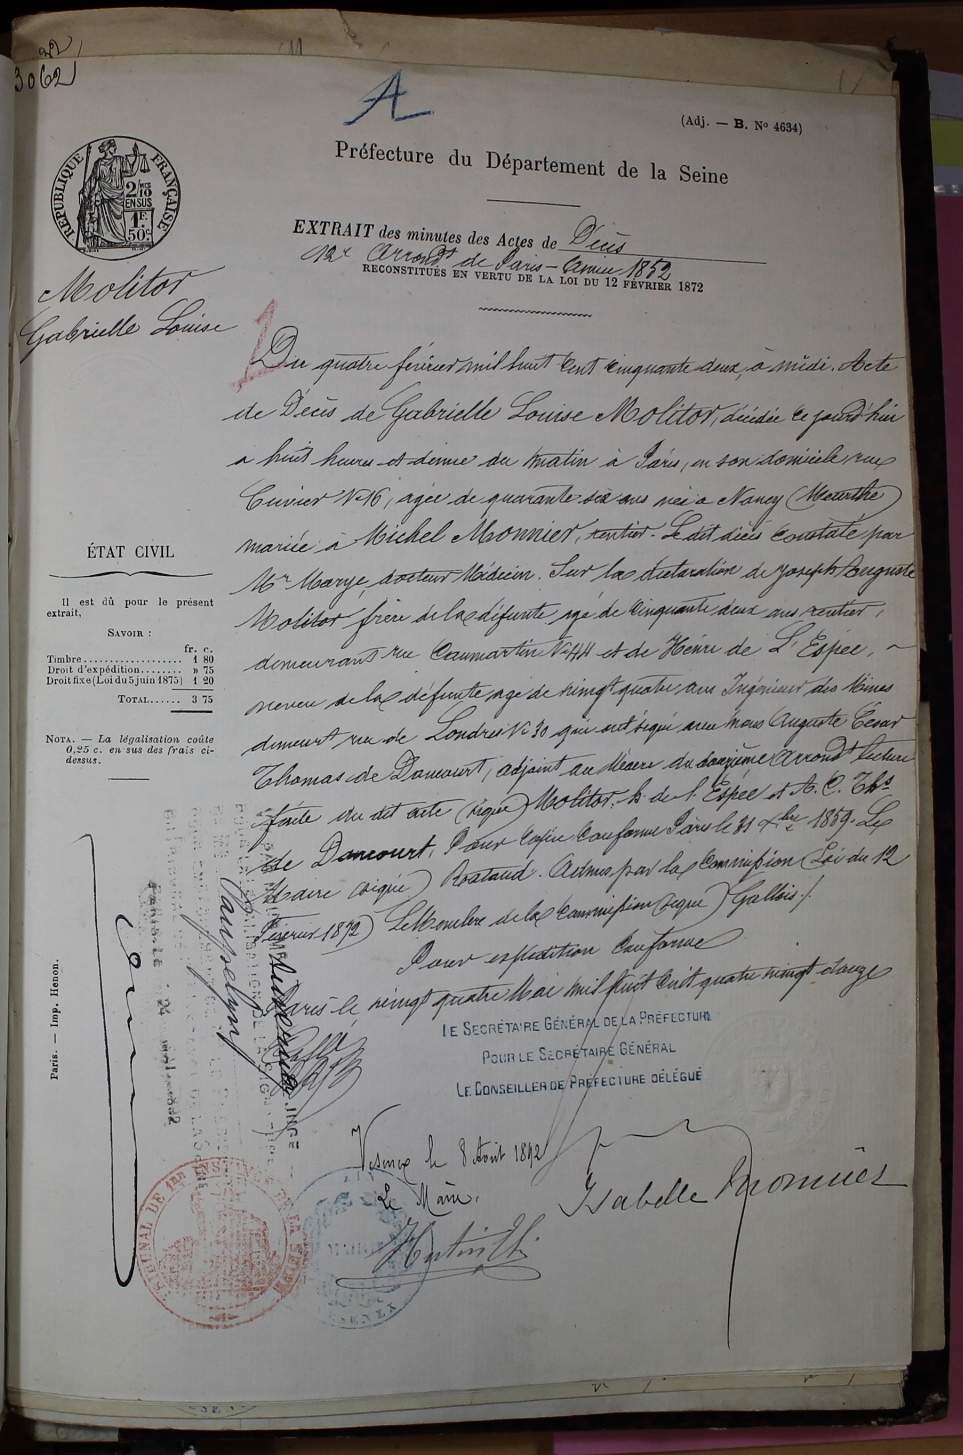 3062
A
(Adj. — B. No 4634)
RÉPUBLIQUE FRANÇAISE
2/10
EN SUS
1F.
50c.
Préfecture du Département de la Seine
EXTRAIT des minutes des Actes de Décès
12e Arrondt de Paris — Année 1852
RECONSTITUÉS EN VERTU DE LA LOI DU 12 FÉVRIER 1872
Molitor
Gabrielle Louise
Du quatre février mil huit cent cinquante deux, à midi. Acte
de Décès de Gabrielle Louise Molitor, décédée ce jourd'hui
a huit heures et demie du matin à Paris, en son domicile rue
Cuvier No 16, agée de quarante six ans née a Nancy (Meurthe)
mariée à Michel Monnier, rentier. Le dit décès constaté par
Mr Marye, docteur Médecin. Sur la déclaration de Joseph Auguste
Molitor frère de la défunte agé de cinquante deux ans rentier,
demeurant rue Caumartin No 44 et de Henri de L'Espée,
neveu de la défunte agé de vingt quatre ans Ingénieur des Mines
demeurt rue de Londres No 30 qui ont signé avec nous Auguste César
Thomas de Dancourt, adjoint au Maire du douzième Arrondt lecture
faite du dit acte (signé) Molitor, h. de l'Espée et A. C. Ths
de Dancourt. Pour copie conforme Paris le 31 Xbre 1859. Le
Maire (signé) Rataud. Admis par la Commission (Loi du 12
Février 1872) Le Membre de la Commission (signé) Gallois /.
Pour expédition conforme
Paris le vingt quatre Mai mil huit cent quatre vingt douze
LE SECRÉTAIRE GÉNÉRAL DE LA PRÉFECTURE
POUR LE SECRÉTAIRE GÉNÉRAL
LE CONSEILLER DE PRÉFECTURE DÉLÉGUÉ
ÉTAT CIVIL
Il est dû pour le présent
extrait,
SAVOIR :
fr. c.
Timbre.................. 1 80
Droit d'expédition........ » 75
Droit fixe (Loi du 5 juin 1875) 1 20
TOTAL...... 3 75
NOTA. — La légalisation coûte
0,25 c. en sus des frais ci-
dessus.
Paris. — Imp. Henon.
le 8 Août 1892
Le Maire,
Isabelle Monnier
TRIBUNAL DE 1ER INSTANCE DE LA SEINE